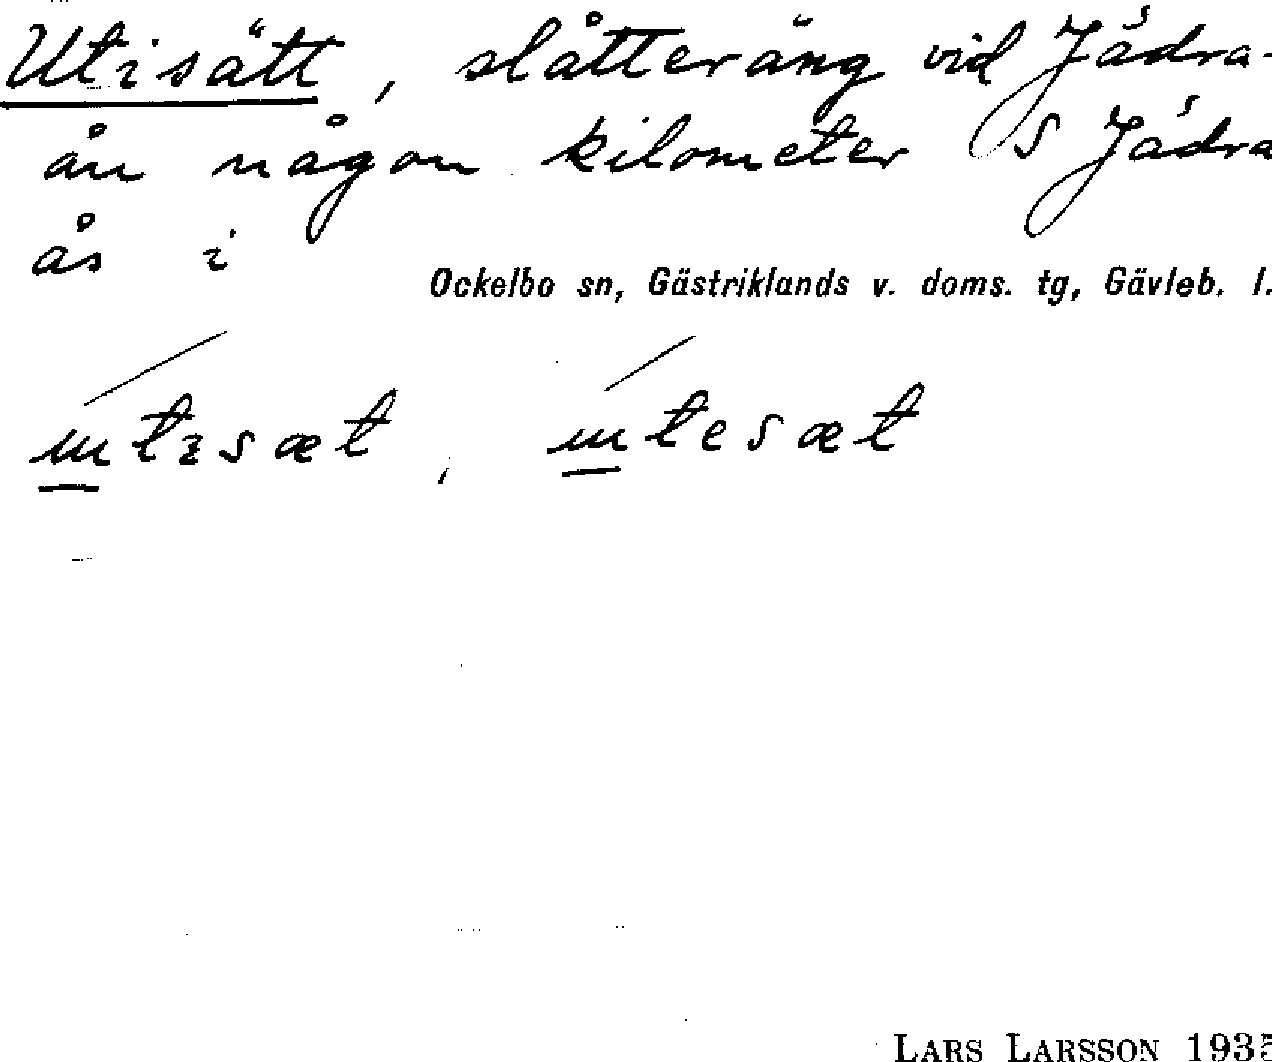 Utisätt, slåtteräng vid Jädra-
ån någon kilometer S Jädra
ås i
Ockelbo sn, Gästriklands v. doms. tg, Gävleb. l.
ɯtɪsæt, ɯtesæt
LARS LARSSON 1935